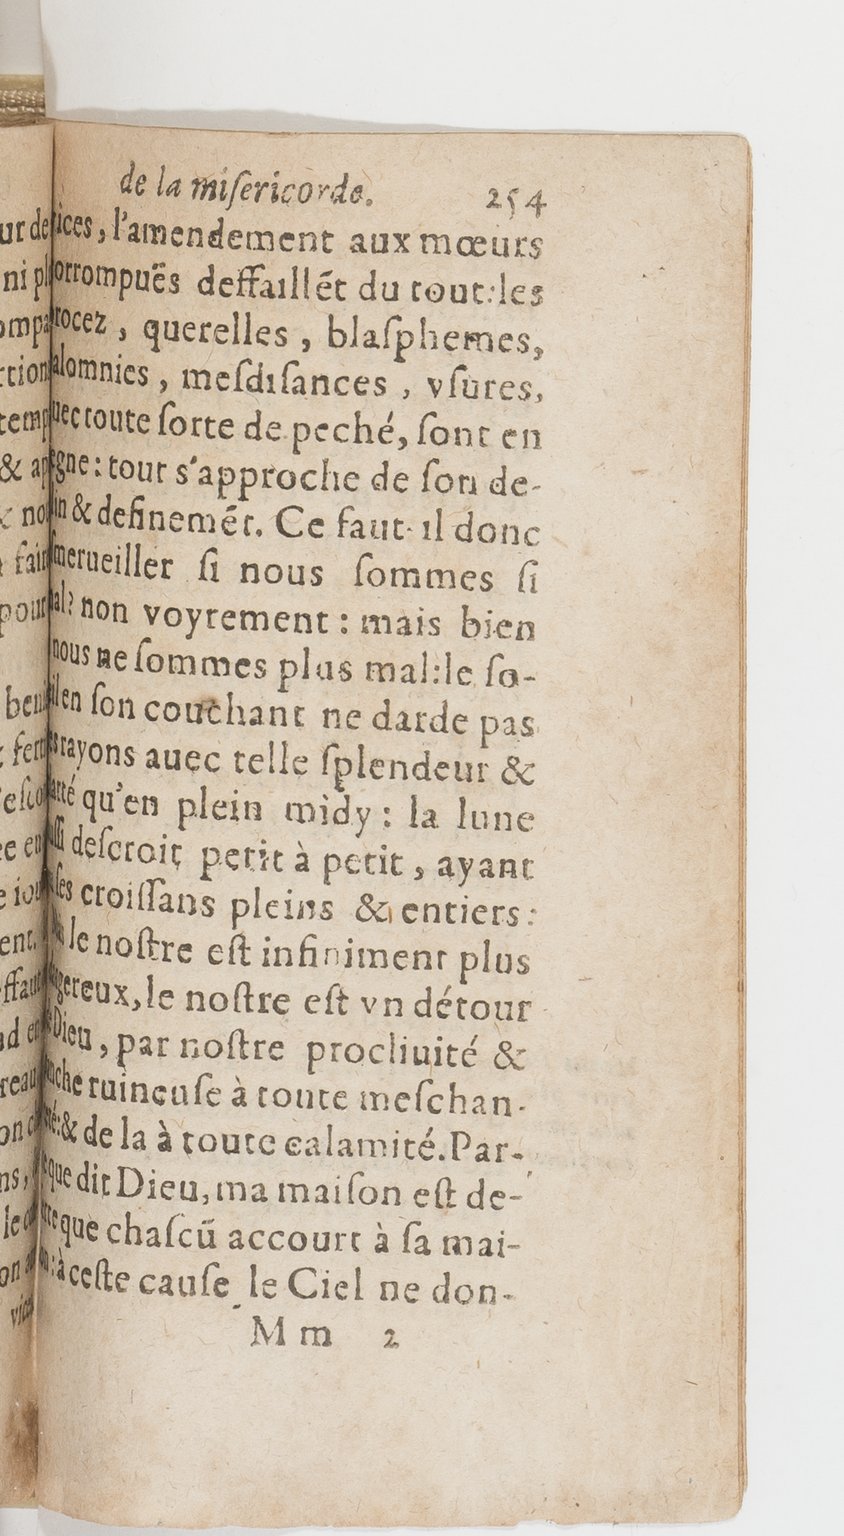 de la miſericorde. 254
ices, l'amendement aux mœurs
orrompuës deffaıllẽt du tout:les
rocez, querelles, blaſphemes,
alomnies, meſdiſances, vſures,
uec toute ſorte de peché, ſont en
gne: tout s'approche de ſon de-
in & definemẽt. Ce faut-il donc
merueiller ſi nous ſommes ſi
al? non voyrement: mais bien
nous ne ſommes plus mal:le ſo-
len ſon couchant ne darde pas
rayons auec telle ſplendeur &
rté qu'en plein midy: la lune
deſcroit petit à petit, ayant
ſes croiſſans pleins & entiers:
le noſtre eſt infiniment plus
gereux, le noſtre eſt vn détour
Dieu, par noſtre procliuité &
che ruineuſe à toute meſchan-
& de la à toute calamité. Par-
que dit Dieu, ma maiſon eſt de-
que chaſcũ accourt à ſa mai-
: à ceſte cauſe le Ciel ne don-
M m 2